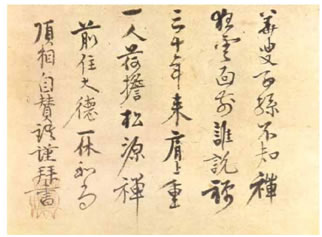 華叟子孫不知禪
狂雲面前誰說禪
三十年来肩上重
一人荷擔松源禪
前住大德一休和尚
頂相自賛謹拜書